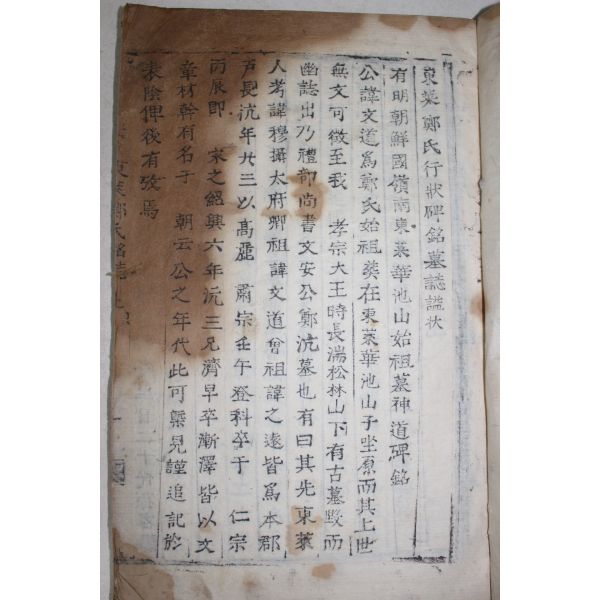 東萊鄭氏行狀碑銘墓誌謚狀
有明朝鮮國嶺南東萊華池山始祖墓神道碑銘
公諱文道爲鄭氏始祖葬在東萊華池山子坐原而其上世
無文可徵至我 孝宗大王時長湍松林山下有古墓毁而
幽誌出乃禮部尚書文安公鄭沆墓也有曰其先東萊
人考諱穆攝太府卿祖諱文道曾祖諱之遠皆爲本郡
戶長沆年廿三以高麗 肅宗壬午登科卒于 仁宗
丙辰即 宋之紹興六年沆三兄濟早卒漸澤皆以文
章材幹有名于 朝云公之年代此可槩見謹追記於
未陰俾後有攷焉
東萊鄭氏銘誌